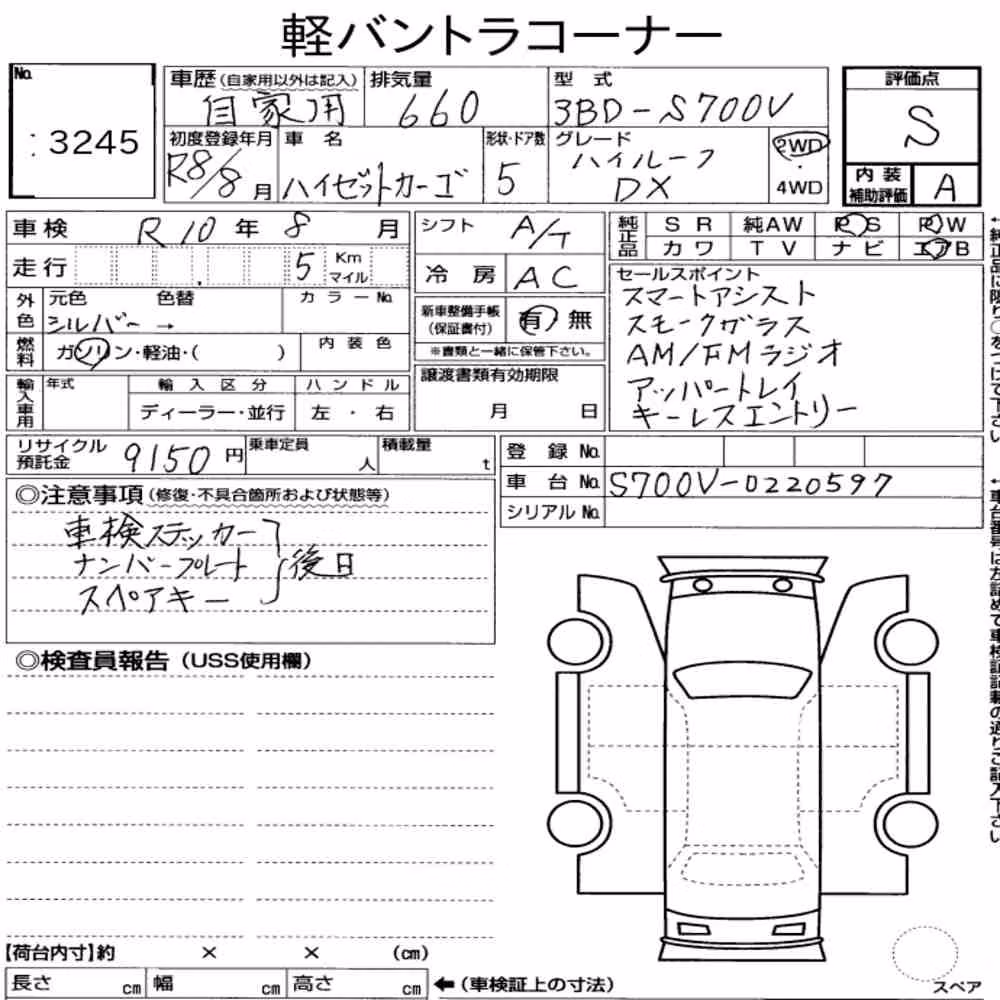 軽バントラコーナー
No. 3245
車歴(自家用以外は記入) 自家用
排気量 660
型式 3BD-S700V
評価点 S
初度登録年月 R8/8月
車名 ハイゼットカーゴ
形状・ドア数 5
グレード ハイルーフ DX
2WD・4WD
内装補助評価 A
車検 R10年8月
シフト A/T
純正品 SR 純AW PS PW
カワ TV ナビ エアB
走行 5 Km マイル
冷房 AC
セールスポイント
スマートアシスト
スモークガラス
AM/FMラジオ
アッパートレイ
キーレスエントリー
外色 元色 シルバー → 色替 カラーNo.
新車整備手帳(保証書付) 有 無
※書類と一緒に保管下さい。
燃料 ガソリン・軽油・( ) 内装色
譲渡書類有効期限
月 日
輸入車用 年式 輸入区分 ハンドル
ディーラー・並行 左・右
リサイクル預託金 9150円
乗車定員 人
積載量 t
登録No.
車台No. S700V-0220597
シリアルNo.
◎注意事項(修復・不具合箇所および状態等)
車検ステッカー
ナンバープレート 後日
スペアキー
◎検査員報告(USS使用欄)
【荷台内寸】約 × × (cm)
長さ cm 幅 cm 高さ cm ←(車検証上の寸法)
スペア
↑純正品に限り○をつけて下さい
↑車台番号は左詰めで車検証記載の通りご記入下さい